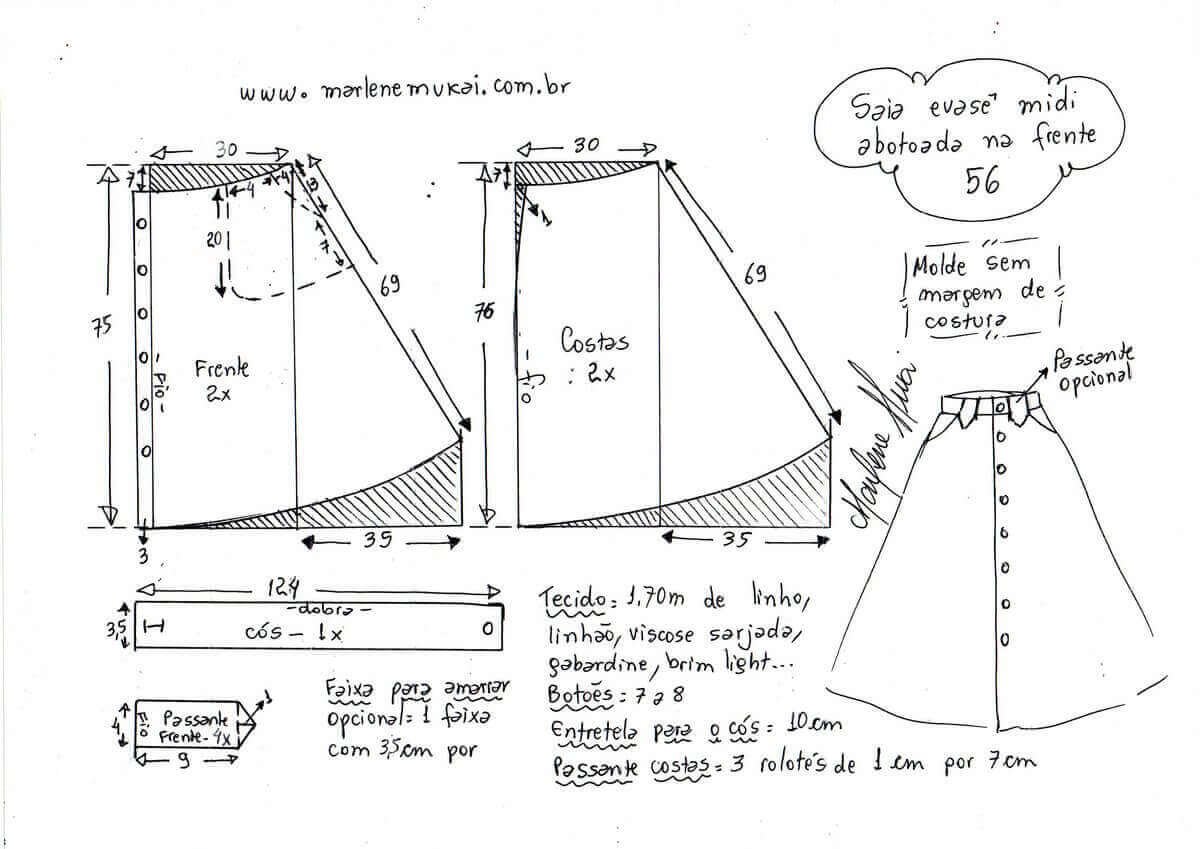 www. marlenemukai.com.br
Saia evasê midi
abotoada na frente
56
Molde sem
margem de
costura
Passante
opcional
Marlene Mukai
30
7
4
4
13
7
20
69
75
Fio
Frente
2x
3
35
30
7
1
69
76
Costas
: 2x
Fio
35
124
3,5
-dobra-
cós - 1x
4
Fio
Passante
Frente- 4x
1
9
Faixa para amarrar
Opcional= 1 faixa
com 35cm por
Tecido= 1.70m de linho,
linhão, viscose sarjada,
gabardine, brim light...
Botões= 7 a 8
Entretela para o cós= 10cm
Passante costas= 3 rolotés de 1cm por 7cm